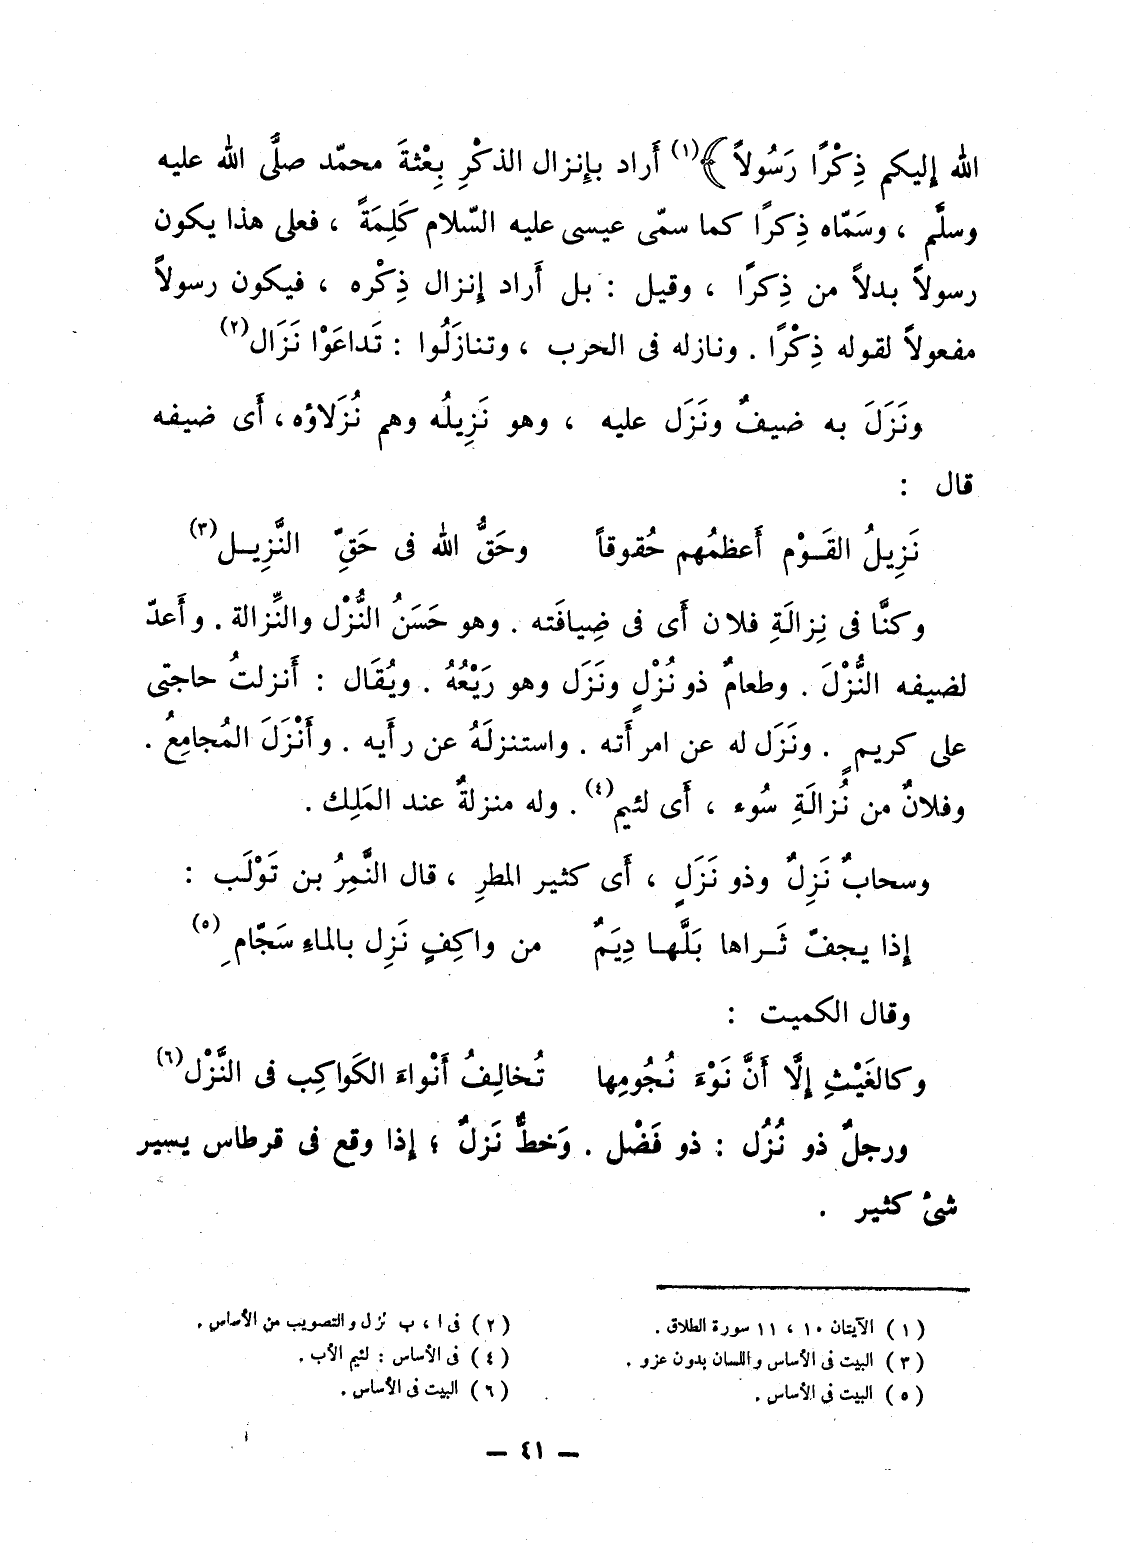 الله إليكم ذِكْرًا رَسُولاً ﴾(١) أَراد بإنزال الذكْرِ بِعْثةَ محمّد صلَّى الله عليه
وسلَّم ، وسَمّاه ذِكرًا كما سمّى عيسى عليه السّلام كَلِمَةً ، فعلى هذا يكون
رسولاً بدلاً من ذِكرًا ، وقيل : بل أَراد إنزال ذِكْره ، فيكون رسولاً
مفعولاً لقوله ذِكْرًا . ونازله فى الحرب ، وتنازَلُوا : تَداعَوْا نَزَال(٢)
ونَزَلَ به ضيفٌ ونَزَل عليه ، وهو نَزِيلُه وهم نُزَلاؤه ، أَى ضيفه
قال :
نَزِيلُ القَوْم أَعظمُهم حُقوقاً وحَقُّ الله فى حَقِّ النَّزِيل(٣)
وكنَّا فى نِزالَةِ فلان أَى فى ضِيافَته . وهو حَسَنُ النُّزْل والنِّزالة . وأَعدّ
لضيفه النُّزْلَ . وطعامٌ ذو نُزْلٍ ونَزَل وهو رَيْعُهُ . ويُقَال : أَنزلتُ حاجتى
على كريمٍ . ونَزَل له عن امرأَته . واستنزلَهُ عن رأيه . وأَنْزَلَ المُجامِعُ .
وفلانٌ من نُزالَةِ سُوء ، أَى لئيم(٤) . وله منزلةٌ عند المَلِك .
وسحابٌ نَزِلٌ وذو نَزَلٍ ، أَى كثير المطرِ ، قال النَّمِرُ بن تَوْلَب :
إِذا يجفّ ثَراها بَلَّها دِيَمٌ من واكِفٍ نَزِل بالماءِ سَجّامِ(٥)
وقال الكميت :
وكالغَيْثِ إلَّا أَنَّ نَوْءَ نُجُومِها تُخالِفُ أَنْواءَ الكَواكِب فى النَّزْل(٦)
ورجلٌ ذو نُزُل : ذو فَضْل . وَخطٌّ نَزلٌ ؛ إذا وقع فى قرطاس يسير
شىْ كثير .
(١) الآيتان ١٠ ، ١١ سورة الطلاق . (٢) فى ا ، ب نزل والتصويب من الأساس .
(٣) البيت فى الأساس واللسان بدون عزو . (٤) فى الأساس : لئيم الأب .
(٥) البيت فى الأساس . (٦) البيت فى الأساس .
— ٤١ —